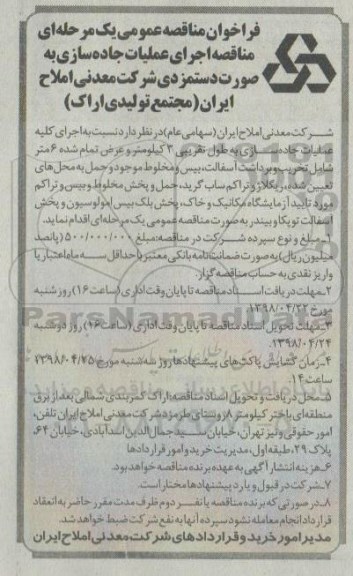 فراخوان مناقصه عمومی یک مرحله‌ای
مناقصه اجرای عملیات جاده‌سازی به
صورت دستمزدی شرکت معدنی املاح
ایران (مجتمع تولیدی اراک)
شرکت معدنی املاح ایران (سهامی عام) در نظر دارد نسبت به اجرای کلیه
عملیات جاده سازی به طول تقریبی ۳ کیلومتر و عرض تمام شده ۶ متر
شامل تخریب و برداشت آسفالت، بیس و مخلوط موجود و حمل به محل‌های
تعیین شده، ریگلاژ و تراکم ساب گرید، حمل و پخش مخلوط و بیس و تراکم
مورد تأیید آزمایشگاه مکانیک و خاک، پخش بلک بیس امولوسیون و پخش
آسفالت توپکا و بیندر به صورت مناقصه عمومی یک مرحله‌ای اقدام نماید.
۱ـ مبلغ و نوع سپرده شرکت در مناقصه: مبلغ ۵۰۰/۰۰۰/۰۰۰ (پانصد
میلیون ریال) به صورت ضمانت‌نامه بانکی معتبر با حداقل سه ماه اعتبار یا
واریز نقدی به حساب مناقصه گزار.
۲ـ مهلت دریافت اسناد مناقصه تا پایان وقت اداری (ساعت ۱۶) روز شنبه
مورخ ۱۳۹۸/۰۴/۲۲
۳ـ مهلت تحویل اسناد مناقصه تا پایان وقت اداری (ساعت ۱۶) روز دوشنبه
۱۳۹۸/۰۴/۲۴.
۴ـ زمان گشایش پاکت‌های پیشنهادها روز سه شنبه مورخ ۱۳۹۸/۰۴/۲۵
ساعت ۱۴
۵ـ محل دریافت و تحویل اسناد مناقصه: اراک کمربندی شمالی بعد از برق
منطقه‌ای باختر کیلومتر ۸ روستای طرمزد شرکت معدنی املاح ایران تلفن،
امور حقوقی و نیز تهران، خیابان سید جمال‌الدین اسدآبادی، خیابان ۶۴،
پلاک ۲۹، طبقه اول، مدیریت خرید و امور قراردادها
۶ـ هزینه انتشار آگهی به عهده برنده مناقصه خواهد بود.
۷ـ شرکت در قبول و یا رد پیشنهادها مختار است.
۸ـ در صورتی که برنده مناقصه یا نفر دوم ظرف مدت مقرر حاضر به انعقاد
قرارداد انجام معامله نشود سپرده آنها به نفع شرکت ضبط خواهد شد.
مدیر امور خرید و قراردادهای شرکت معدنی املاح ایران
ParsNamadData